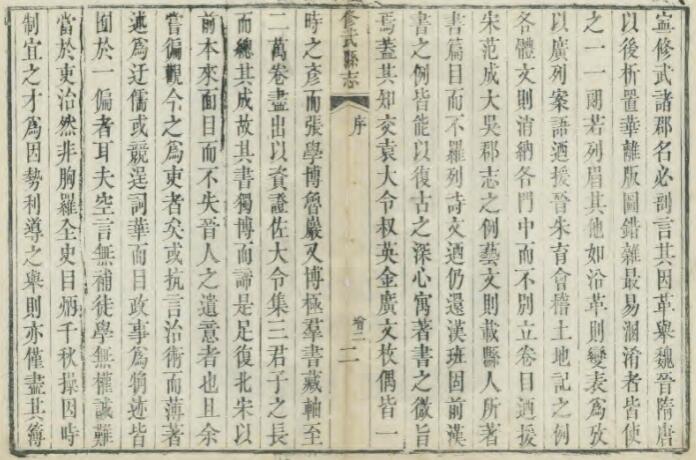 寍修武諸郡名必剖言其因革舉魏晉隋唐
以後析置華離版圖錯雜最易溷淆者皆使
之一一朗若列眉其他如沿革則變表爲攷
以廣列案語迺援晉朱育會稽土地記之例
各體文則消納各門中而不別立卷目迺援
宋范成大吳郡志之例藝文則載縣人所著
書篇目而不羅列詩文迺仍還漢班固前漢
書之例皆能以復古之深心寓著書之微旨
焉蓋其知交袁大令叔英金廣文枚偶皆一
修武縣志
序
卷首二
二
時之彥而張學博魯巖又博極羣書藏軸至
二萬卷盡出以資證佐大令集三君子之長
而總其成故其書獨博而諦是足復北宋以
前本來面目而不失晉人之遺意者也且余
嘗徧觀今之爲吏者矣或抗言治術而薄著
述爲迂儒或競逞詞華而目政事爲觕迹皆
囿於一偏者耳夫空言無補徒學無權誠難
當於吏治然非胸羅全史目炳千秋操因時
制宜之才爲因勢利導之舉則亦僅盡其簿